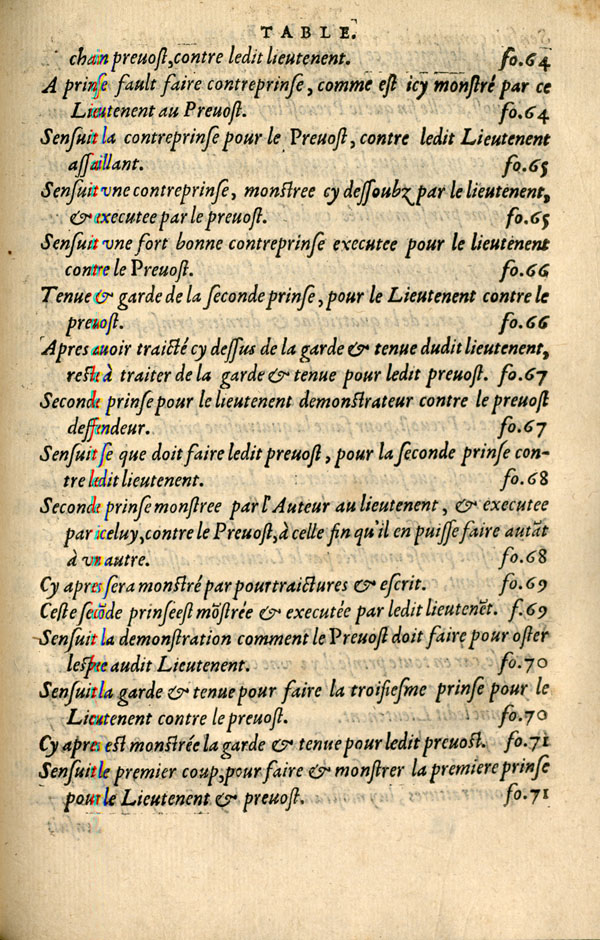 TABLE.
chain preuost, contre ledit lieutenent. fo.64
A prinse fault faire contreprinse, comme est icy monstré par ce
Lieutenent au Preuost. fo.64
Sensuit la contreprinse pour le Preuost, contre ledit Lieutenent
assaillant. fo.65
Sensuit vne contreprinse, monstree cy dessoubz par le lieutenent,
& executee par le preuost. fo.65
Sensuit vne fort bonne contreprinse executee pour le lieutenent
contre le Preuost. fo.66
Tenue & garde de la seconde prinse, pour le Lieutenent contre le
preuost. fo.66
Apres auoir traicté cy dessus de la garde & tenue dudit lieutenent,
reste à traiter de la garde & tenue pour ledit preuost. fo.67
Seconde prinse pour le lieutenent demonstrateur contre le preuost
deffendeur. fo.67
Sensuit se que doit faire ledit preuost, pour la seconde prinse con-
tre ledit lieutenent. fo.68
Seconde prinse monstree par l'Auteur au lieutenent, & executee
par iceluy, contre le Preuost, à celle fin qu'il en puisse faire autāt
à vn autre. fo.68
Cy apres sera monstré par pourtraictures & escrit. fo.69
Ceste secōde prinseest mōstrée & executée par ledit lieutenēt. f.69
Sensuit la demonstration comment le Preuost doit faire pour oster
lespee audit Lieutenent. fo.70
Sensuit la garde & tenue pour faire la troisiesme prinse pour le
Lieutenent contre le preuost. fo.70
Cy apres est monstrée la garde & tenue pour ledit preuost. fo.71
Sensuit le premier coup, pour faire & monstrer la premiere prinse
pour le Lieutenent & preuost. fo.71
Sensuis